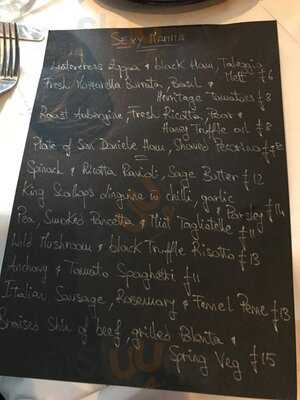 SEXY MAMMA
Watercress Zuppa & black Ham, Taleggio
Melt £6
Fresh Mozzarella Burrata, Basil &
Heritage Tomatoes £8
Roast Aubergine, Fresh Ricotta, Pear &
Honey Truffle oil £8
Plate of San Daniele Ham, Shaved Pecorino
Spinach & Ricotta Ravioli, Sage Butter £12
King Scallops linguine in chilli, garlic
& Parsley £14
Pea, Smoked Pancetta & Mint Tagliatelle £11
Wild Mushroom & black Truffle Risotto £13
Anchovy & Tomato Spaghetti £11
Italian Sausage, Rosemary & Fennel Penne £13
Braised Shin of beef, grilled Polenta &
Spring Veg £15